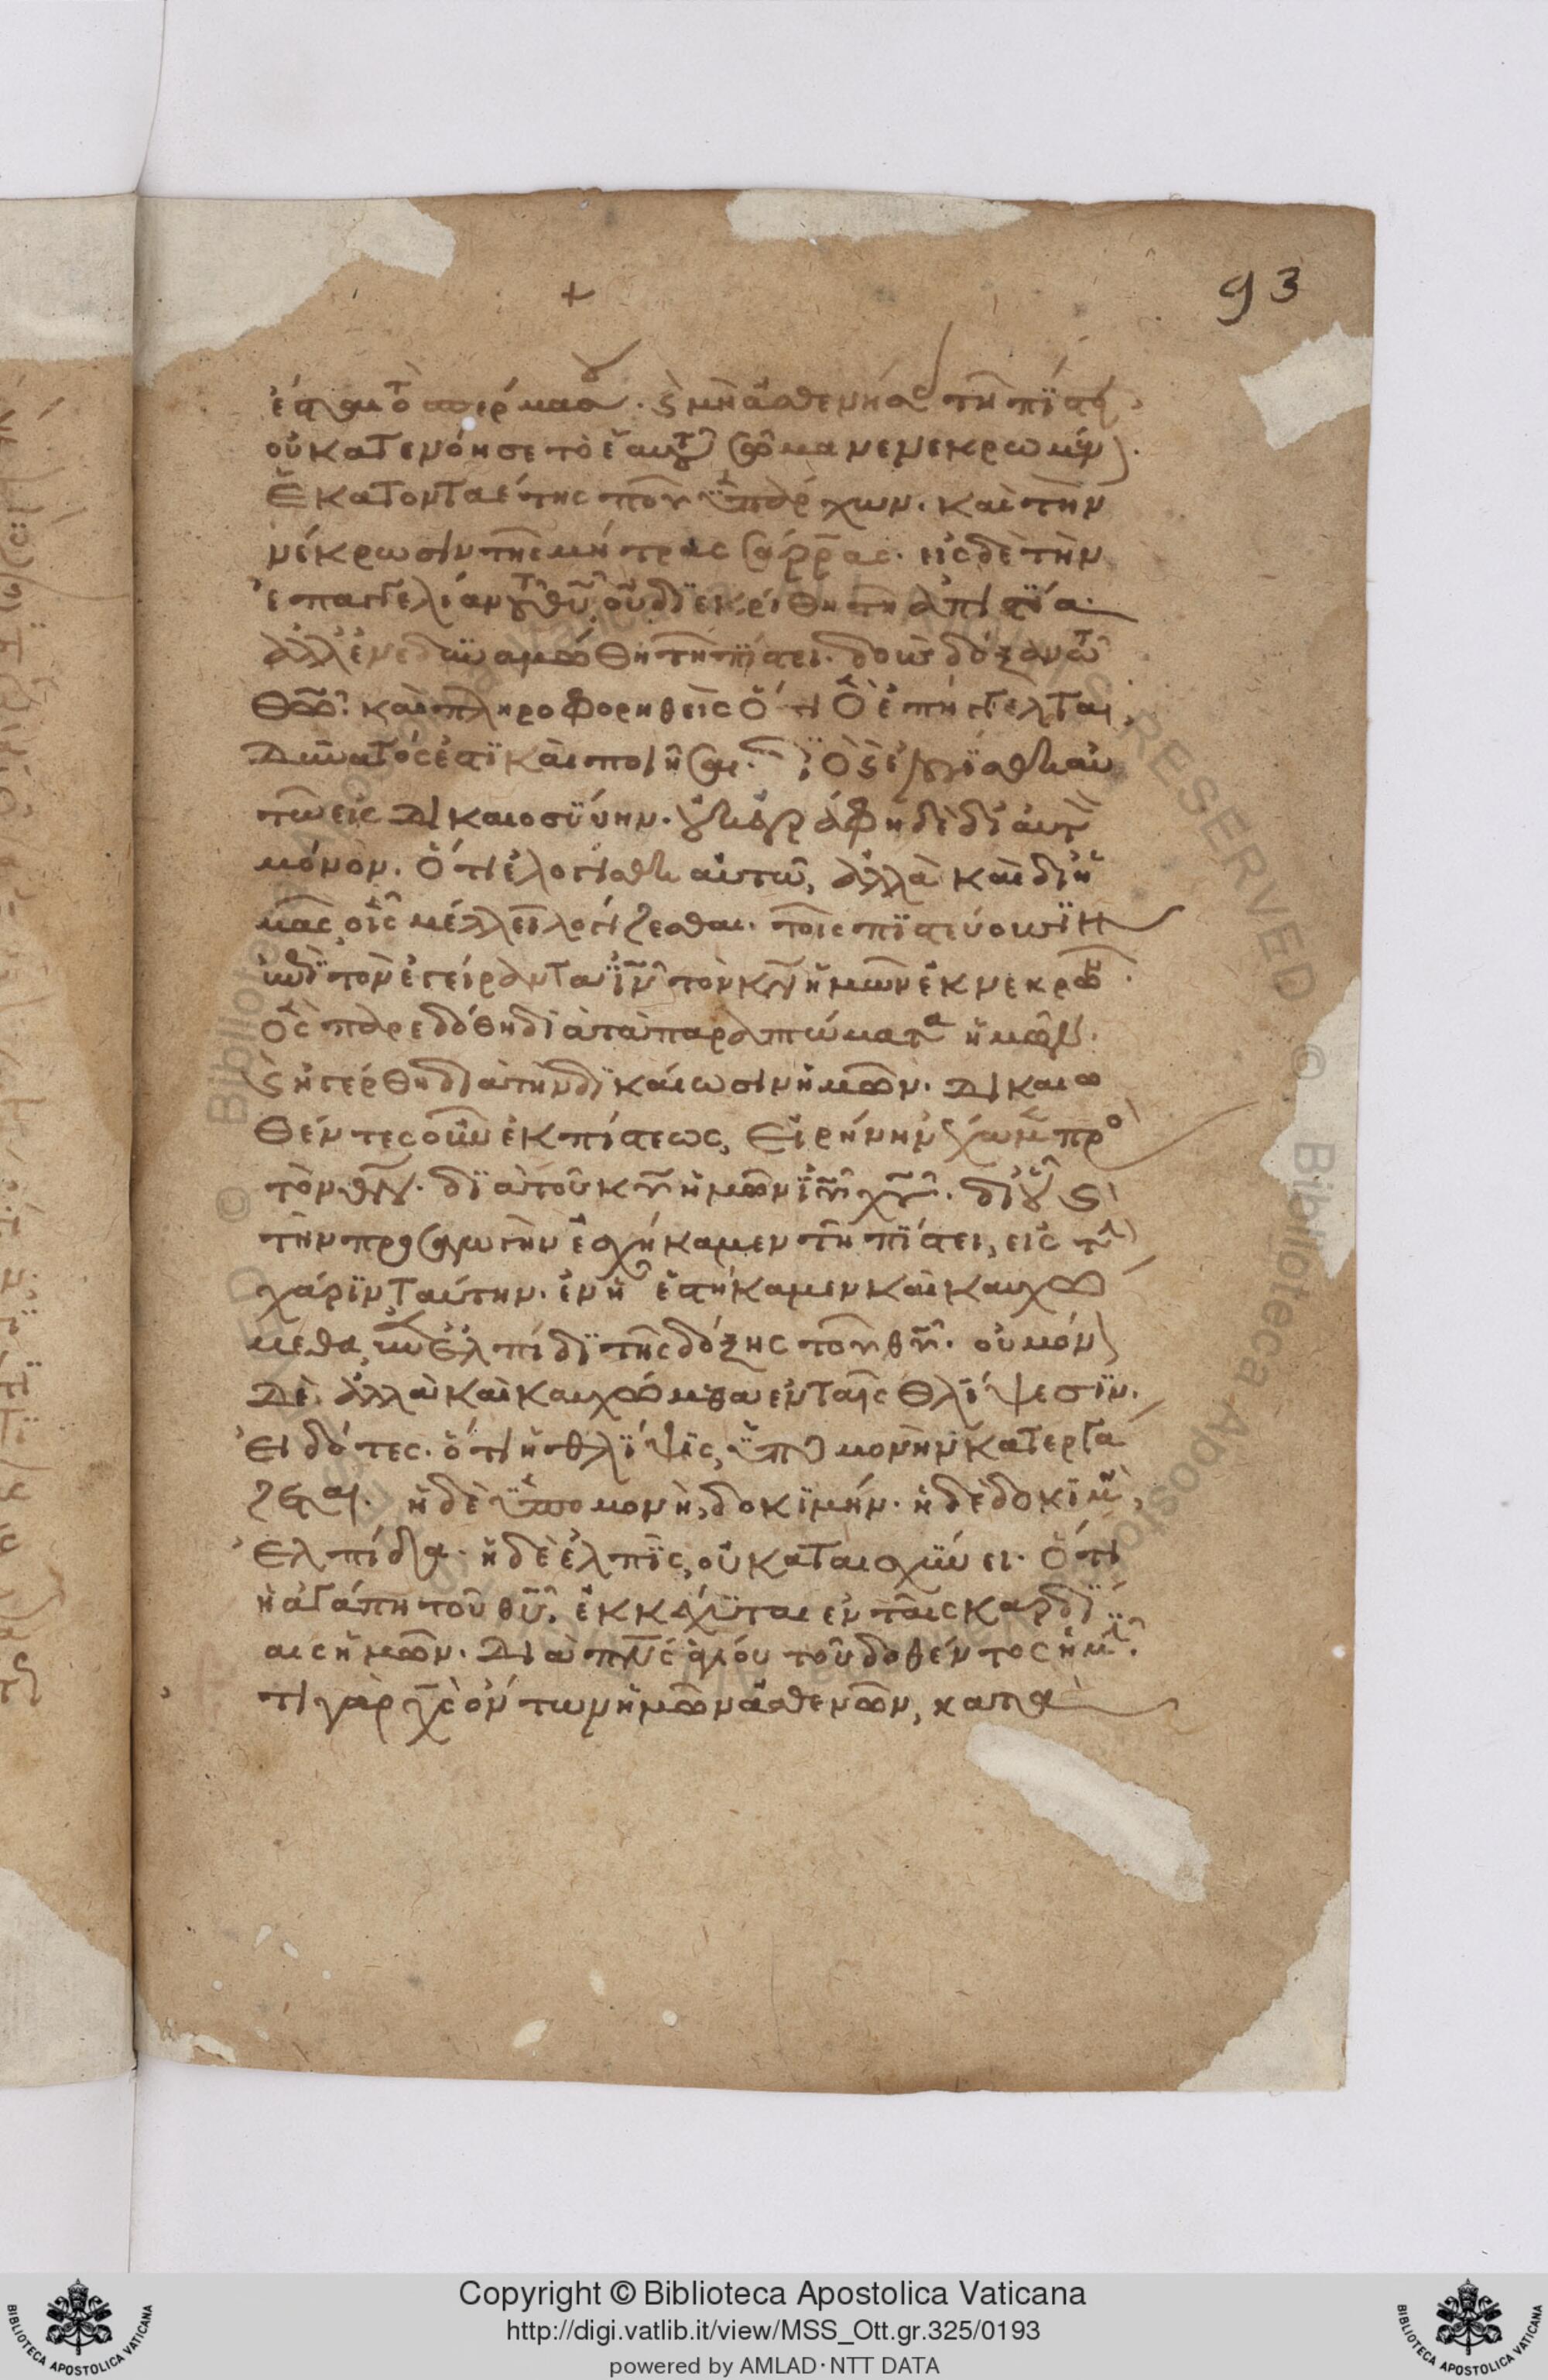 93
ἔσται τὸ σπέρμα σου. καὶ μὴ ἀσθενήσας τῆ πίστει,
οὐ κατενόησε τὸ ἑαυτοῦ σῶμα νενεκρωμένον.
ἑκατονταέτης που ὑπάρχων. καὶ τὴν
νέκρωσιν τῆς μήτρας σάρρας. εἰς δὲ τὴν
ἐπαγγελίαν τοῦ θυ οὐ διεκρίθη τῆ ἀπιστία.
ἀλλ' ἐνεδυναμώθη τῆ πίστει. δοὺς δόξαν τῶ
θῶ. καὶ πληροφορηθεὶς ὅτι ὃ ἐπήγγελται,
δυνατός ἐστι καὶ ποιῆσαι. διὸ καὶ ἐλογίσθη αὐ
τῶ εἰς δικαιοσύνην. οὐκ ἐγράφη δὲ δι' αὐτὸν
μόνον. ὅτι ἐλογίσθη αὐτῶ, ἀλλὰ καὶ δι' ἡ
μᾶς, οἷς μέλλει λογίζεσθαι. τοῖς πιστεύουσιν
ἐπὶ τὸν ἐγείραντα ιν τὸν κν ἡμῶν ἐκ νεκρῶν.
ὃς παρεδόθη διὰ τὰ παραπτώματα ἡμῶν.
καὶ ἠγέρθη διὰ τὴν δικαίωσιν ἡμῶν. δικαιω
θέντες οὖν ἐκ πίστεως, εἰρήνην ἔχωμεν πρὸς
τὸν θν. διὰ τοῦ κυ ἡμῶν ιυ χυ. δι' οὗ καὶ
τὴν προσαγωγὴν ἐσχήκαμεν τῆ πίστει, εἰς τὴν
χάριν ταύτην. ἐν ἧ ἑστήκαμεν καὶ καυχώ
μεθα, ἐπ' ἐλπίδι τῆς δόξης τοῦ θυ. οὐ μόνον
δὲ ἀλλὰ καὶ καυχώμεθα ἐν ταῖς θλίψεσιν.
εἰδότες. ὅτι ἡ θλίψις, ὑπομονὴν κατεργά
ζεται. ἡ δὲ ὑπομονὴ, δοκιμήν. ἡ δὲ δοκιμὴ,
ἐλπίδα. ἡ δὲ ἐλπὶς, οὐ καταισχύνει. ὅτι
ἡ ἀγάπη τοῦ θυ. ἐκκέχυται ἐν ταῖς καρδί
αις ἡμῶν. διὰ πνς ἁγίου τοῦ δοθέντος ἡμῖν.
ἔτι γὰρ χς ὄντων ἡμῶν ἀσθενῶν, κατὰ
© Biblioteca Apostolica Vaticana
Copyright © Biblioteca Apostolica Vaticana
http://digi.vatlib.it/view/MSS_Ott.gr.325/0193
powered by AMLAD·NTT DATA
BIBLIOTECA APOSTOLICA VATICANA
BIBLIOTECA APOSTOLICA VATICANA